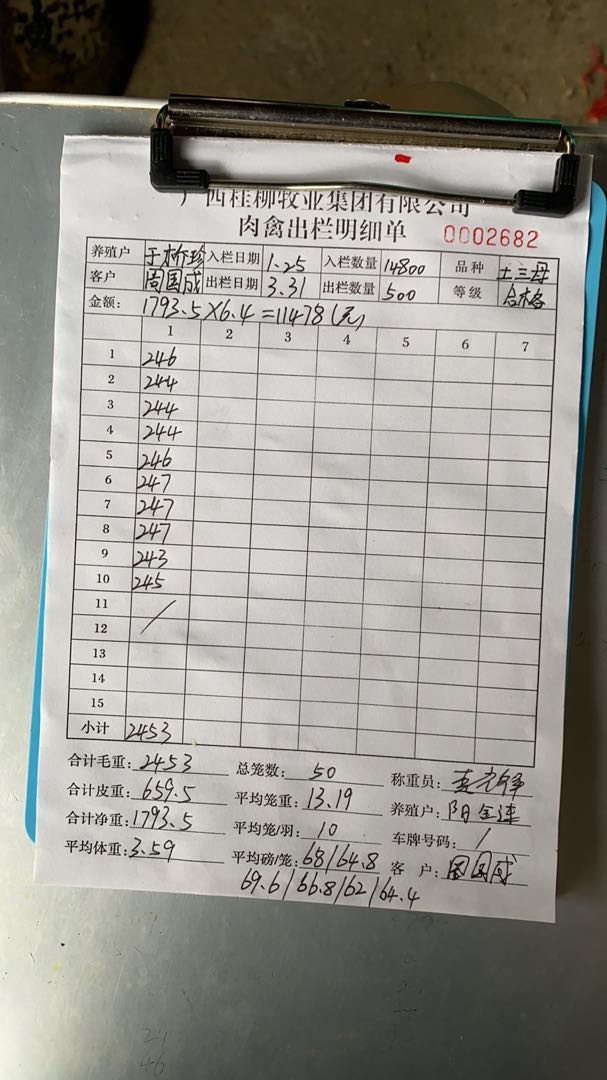 广西桂柳牧业集团有限公司
肉禽出栏明细单 0002682
养殖户 入栏日期 1.25 入栏数量 14800 品种 土三母
客户 周国成 出栏日期 3.31 出栏数量 500 等级 合格
金额: 1793.5×6.4=11478(元)
1 2 3 4 5 6 7
1 246
2 244
3 244
4 244
5 246
6 247
7 247
8 247
9 243
10 245
11
12
13
14
15
小计 2453
合计毛重: 2453 总笼数: 50 称重员:
合计皮重: 659.5 平均笼重: 13.19 养殖户: 阳金连
合计净重: 1793.5 平均笼/羽: 10 车牌号码: /
平均体重: 3.59 平均磅/笼: 68/64.8 客户: 周国成
69.6/66.8/62/64.4